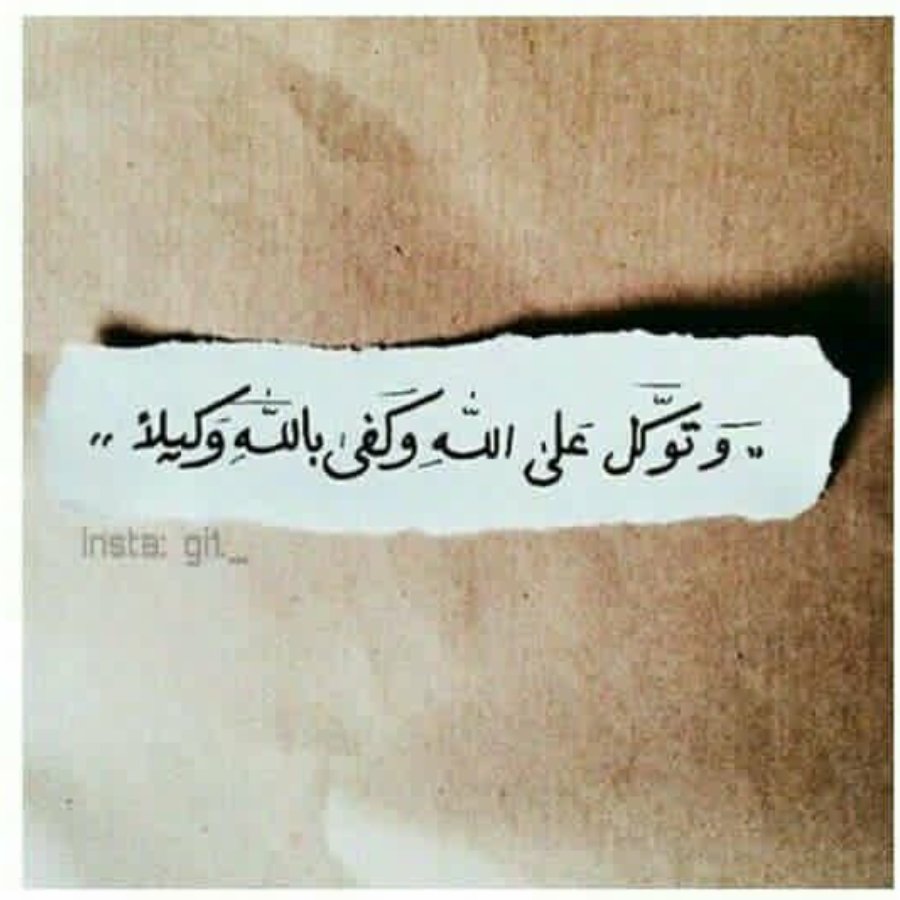 " وَتوَكَّل عَلىٰ اللّٰهِ وَكَفىٰ بِاللّٰهِ وَكيلاً "
Insta: git._